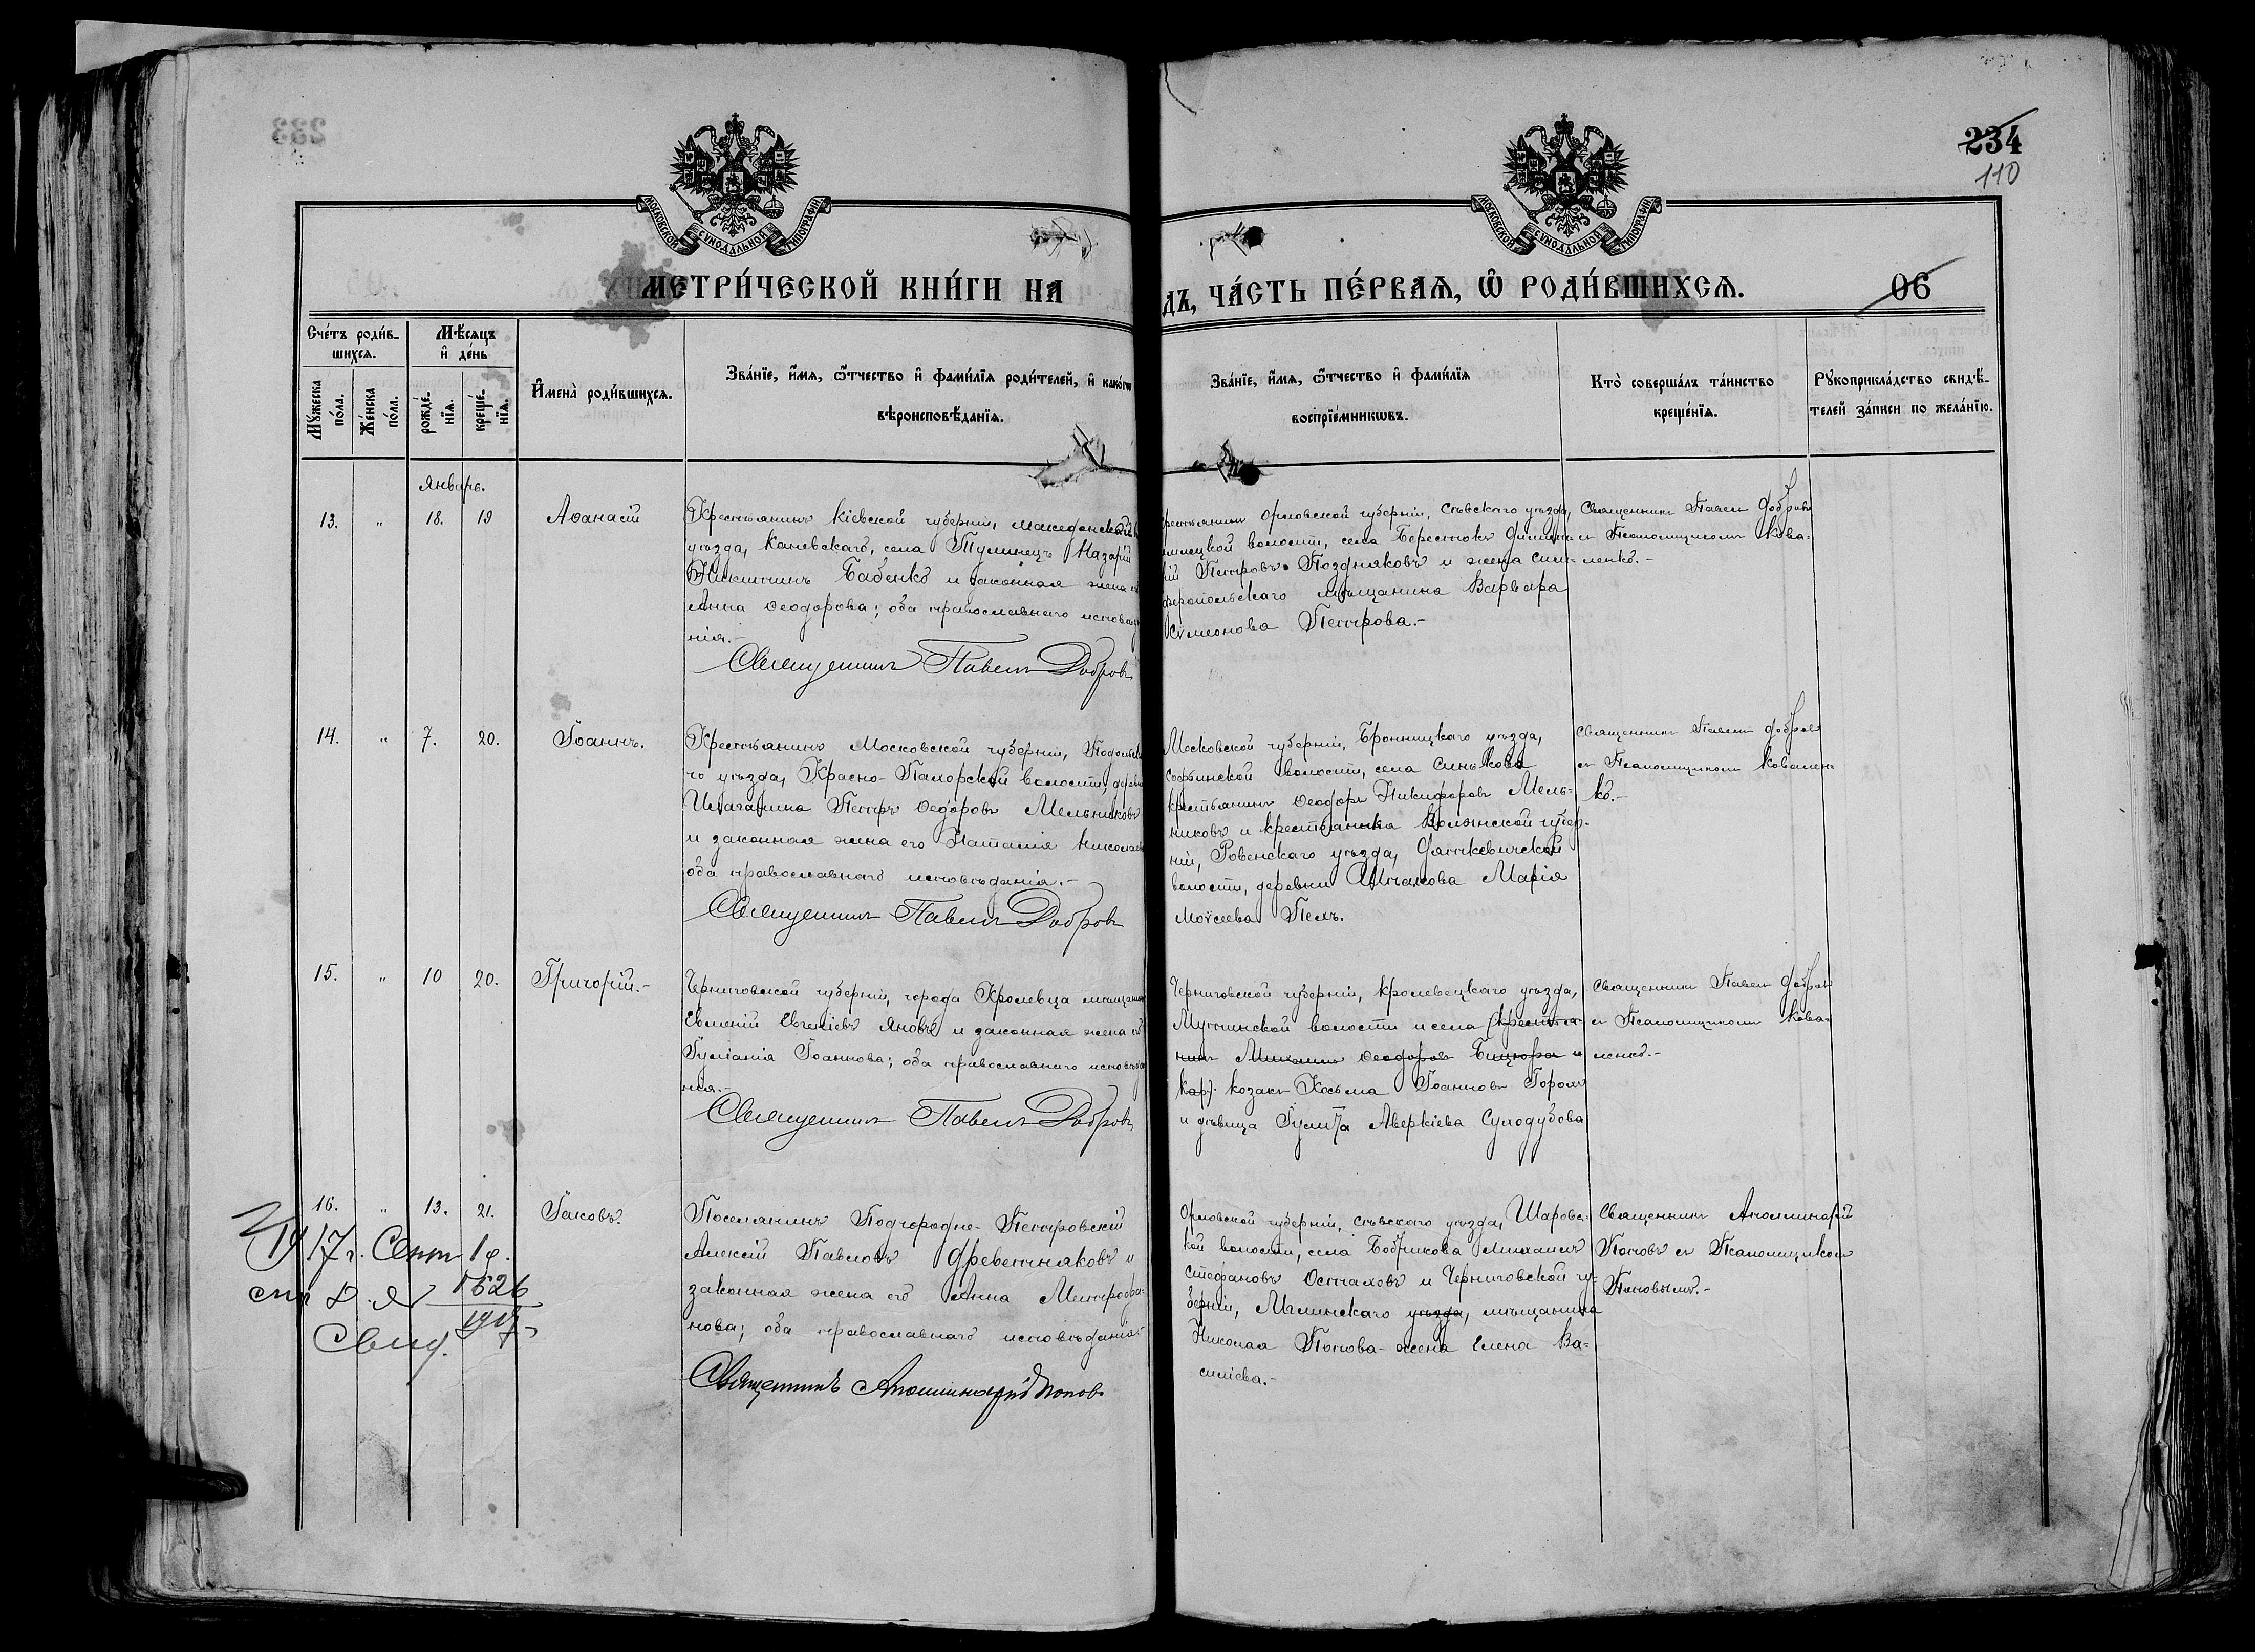 233
234
110
МОСКОВСКОЙ СѴНОДАЛЬНОЙ ТИПОГРАФІИ
МОСКОВСКОЙ СѴНОДАЛЬНОЙ ТИПОГРАФІИ
МЕТРИ́ЧЕСКОЙ КНИ́ГИ НА
ДЪ, ЧА́СТЬ ПЕ́РВАѦ, Ѡ҆ РОДИ́ВШИХСѦ.
06
Сче́тъ роди́в-
шихсѧ.
Мѣ́сѧцъ
и҆ де́нь
Мꙋ́жеска
по́ла.
Же́нска
по́ла.
рожде́-
нїѧ.
креще́-
нїѧ.
И҆мена̀ роди́вшихсѧ.
Зва́нїе, и҆́мѧ, ѻ҆́тчество и҆ фами́лїѧ роди́телей, и҆ како́гѡ
вѣроисповѣ́данїѧ.
Зва́нїе, и҆́мѧ, ѻ҆́тчество и҆ фами́лїѧ
воспрїе́мникѡвъ.
Кто̀ соверша́лъ та́инство
креще́нїѧ.
Рꙋкоприкла́дство свидѣ́-
телей за́писи по жела́нїю.
Январь.
13.
"
18.
19
Аѳанасій
Крестьянинъ Кіевской губерніи,
уѣзда, Каневскаго, села Тулинецъ Назарій
Никитинъ Бабенко и законная жена
Анна Ѳеодорова; оба православнаго исповѣда
нія.-
Священникъ Павелъ Добровъ
Орловской губерніи, Сѣвскаго уѣзда,
волости, села Берестокъ
Петровъ Поздняковъ и жена Сим-
феропольскаго мѣщанина Варвара
Сѵмеонова Петрова.-
Священникъ Павелъ Добровъ
съ Псаломщикомъ Кова-
ленко.-
14.
"
7.
20.
Іоаннъ.
Крестьянинъ Московской губерніи, Подольска
го уѣзда, Красно-Пахорской волости, дерев
Петръ Ѳеодоровъ Мельниковъ
и законная жена его Наталія
оба православнаго исповѣданія.-
Священникъ Павелъ Добровъ
Московской губерніи, Бронницкаго уѣзда,
Софьинской волости, села Синькова
крестьянинъ Ѳеодоръ Никифоровъ Мель-
никовъ и крестьянка Волынской губер-
ніи, Ровенскаго уѣзда, Дяткевичской
волости, деревни Марія
Моѵсеева
Священникъ Павелъ Добровъ
съ Псаломщикомъ Ковален-
ко.-
15.
"
10
20.
Григорій.-
Черниговской губерніи, города Кролевца мѣщанинъ
Евменій Евгеніевъ Яновъ и законная жена его
Іуліанія Іоаннова; оба православнаго исповѣда
нія.-
Священникъ Павелъ Добровъ
Черниговской губерніи, Кролевецкаго уѣзда,
Мутинской волости и села (крестья-
нинъ Михаилъ Ѳеодоровъ и
козакъ Косьма Іоанновъ
и дѣвица Іулитта Аверкіева Суходубова
Священникъ Павелъ Добровъ
съ Псаломщикомъ Кова-
ленко.-
16.
"
13.
21.
Іаковъ.
1917 г. Сент 19.
1626
1917
Свид.
Поселянинъ Подгородно-Петровскій
Алексій Павловъ Древетняковъ и
законная жена его Анна Митрофа-
нова; оба православнаго исповѣданія
Священникъ Аполлинарій Поповъ
Орловской губерніи, Сѣвскаго уѣзда, Шаровс-
кой волости, села Бобрикова Михаилъ
Стефановъ Остаховъ и Черниговской гу-
берніи, Мглинскаго уѣзда, мѣщанина
Николая Попова жена Елена Ва-
силіева.-
Священникъ Аполлинарій
Поповъ съ Псаломщикомъ
Поповымъ.-